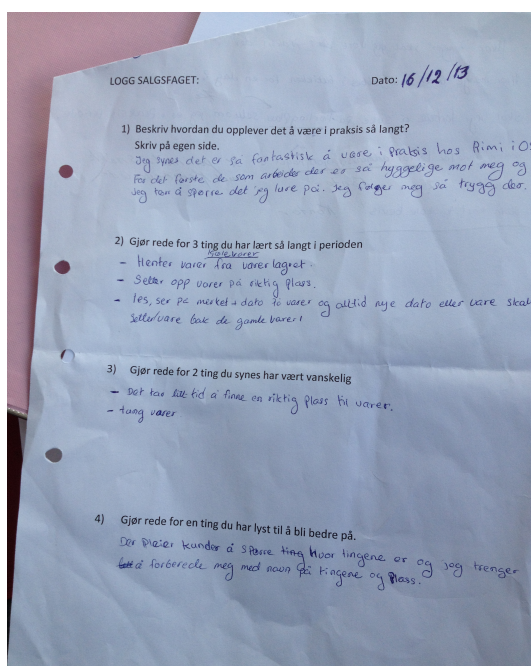 LOGG SALGSFAGET: Dato: 16/12/13
1) Beskriv hvordan du opplever det å være i praksis så langt?
Skriv på egen side.
Jeg synes det er så fantastisk å være i praksis hos Rimi i
For det første de som arbeider der er så hyggelige mot meg og
jeg kan å spørre det jeg lure på. Jeg føler meg så trygg der.
2) Gjør rede for 3 ting du har lært så langt i perioden
- Henter varer fra varer lagret.
- Setter opp varer på riktig plass.
- les, ser på merket + dato to varer og alltid nye dato eller vare skal
Setter/vare bak de gamle varer!
3) Gjør rede for 2 ting du synes har vært vanskelig
- Det tar litt tid å finne en riktig plass til varer.
- tung varer
4) Gjør rede for en ting du har lyst til å bli bedre på.
Der pleier kunder å spørre ting Hvor tingene er og jeg trenger
å forberede meg med navn på tingene og plass.